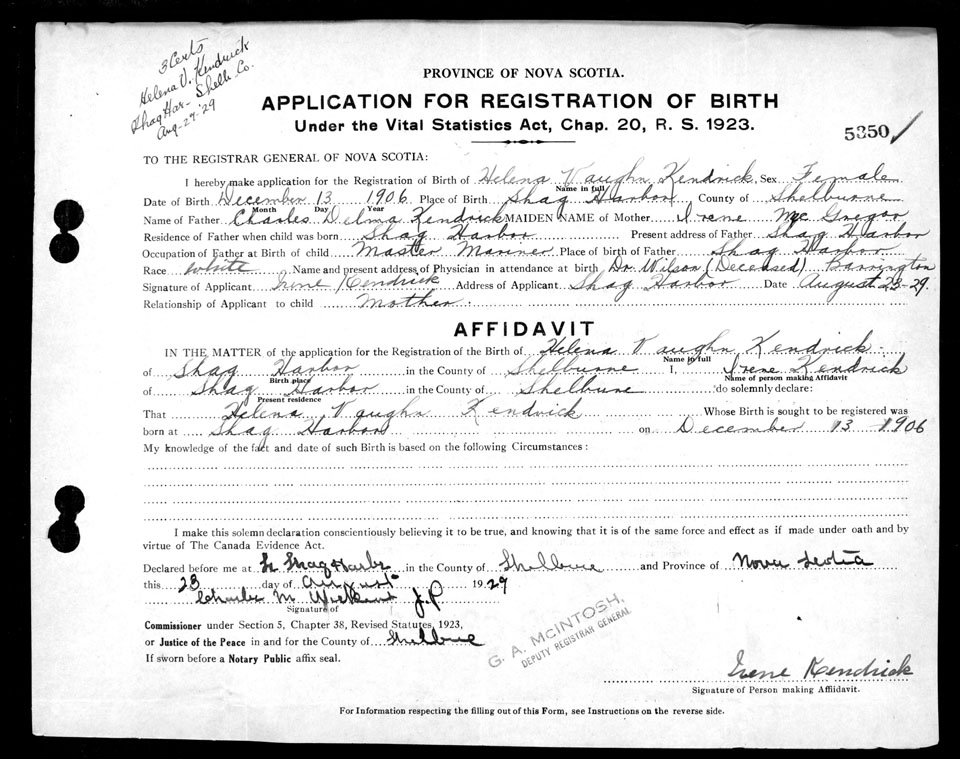 3 Certs
Helena V. Kendrick
Shag Har- Shelb. Co.
Aug-27-29
PROVINCE OF NOVA SCOTIA.
APPLICATION FOR REGISTRATION OF BIRTH
Under the Vital Statistics Act, Chap. 20, R. S. 1923.
5350
TO THE REGISTRAR GENERAL OF NOVA SCOTIA:
I hereby make application for the Registration of Birth of Helena Vaughn Kendrick Sex Female
Name in full
Date of Birth December 13 1906 Place of Birth Shag Harbor County of Shelburne
Month Day Year
Name of Father Charles Delma Kendrick MAIDEN NAME of Mother Irene McGregor
Residence of Father when child was born Shag Harbor Present address of Father Shag Harbor
Occupation of Father at Birth of child Master Mariner Place of birth of Father Shag Harbor
Race White Name and present address of Physician in attendance at birth Dr. Wilson (Deceased) Barrington
Signature of Applicant Irene Kendrick Address of Applicant Shag Harbor Date August 23-29.
Relationship of Applicant to child Mother
AFFIDAVIT
IN THE MATTER of the application for the Registration of the Birth of Helena Vaughn Kendrick
Name in full
of Shag Harbor in the County of Shelburne I, Irene Kendrick
Birth place Name of person making Affidavit
of Shag Harbor in the County of Shelburne do solemnly declare:
Present residence
That Helena Vaughn Kendrick Whose Birth is sought to be registered was
born at Shag Harbor on December 13 1906
My knowledge of the fact and date of such Birth is based on the following Circumstances:
I make this solemn declaration conscientiously believing it to be true, and knowing that it is of the same force and effect as if made under oath and by
virtue of The Canada Evidence Act.
Declared before me at Shag Harbor in the County of Shelburne and Province of Nova Scotia
this 23 day of August 1929
Charles M J.P
Signature of
Commissioner under Section 5, Chapter 38, Revised Statutes, 1923,
or Justice of the Peace in and for the County of Shelburne
If sworn before a Notary Public affix seal.
G. A. McINTOSH,
DEPUTY REGISTRAR GENERAL
Irene Kendrick
Signature of Person making Affidavit.
For Information respecting the filling out of this Form, see Instructions on the reverse side.